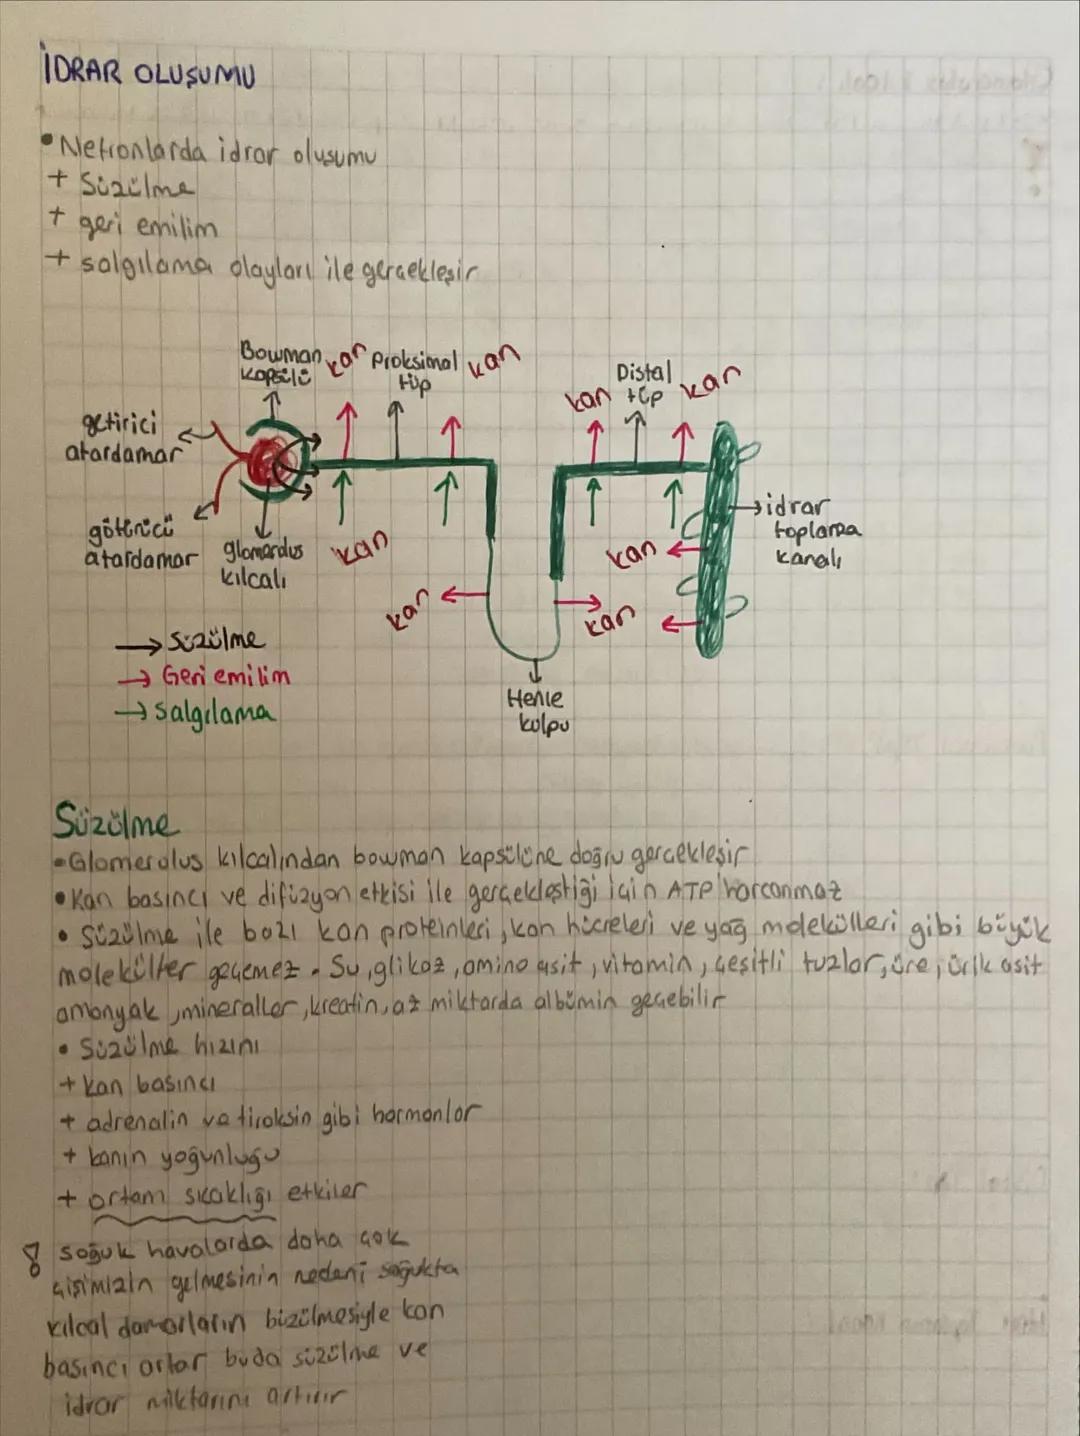 İDRAR OLUŞUMU
• Nefronlarda idrar oluşumu
+ Süzülme
+ geri emilim
+ salgılama olayları ile gerçekleşir
Bowman kapsülü
kan
Proksimal tüp
kan
Distal tüp
kan
kan
getirici atardamar
götürücü atardamar
glomerulus kılcalı
kan
kan
kan
kan
idrar toplama kanalı
Henle kulpu
→ Süzülme
→ Geri emilim
→ Salgılama
Süzülme
• Glomerolus kılcalından bowman kapsülüne doğru gerçekleşir
• Kan basıncı ve difüzyon etkisi ile gerçekleştiği için ATP harcanmaz
• Süzülme ile bazı kan proteinleri, kan hücreleri ve yağ molekülleri gibi büyük
moleküller geçemez. Su, glikoz, amino asit, vitamin, çeşitli tuzlar, üre, ürik asit
amonyak, mineraller, kreatin, az miktarda albümin geçebilir
• Süzülme hızını
+ kan basıncı
+ adrenalin ve tiroksin gibi hormonlar
+ kanın yoğunluğu
+ ortam sıcaklığı etkiler
! soğuk havalarda daha çok
çişimizin gelmesinin nedeni soğukta
kılcal damarların büzülmesiyle kan
basıncı artar buda süzülme ve
idrar miktarını artırır